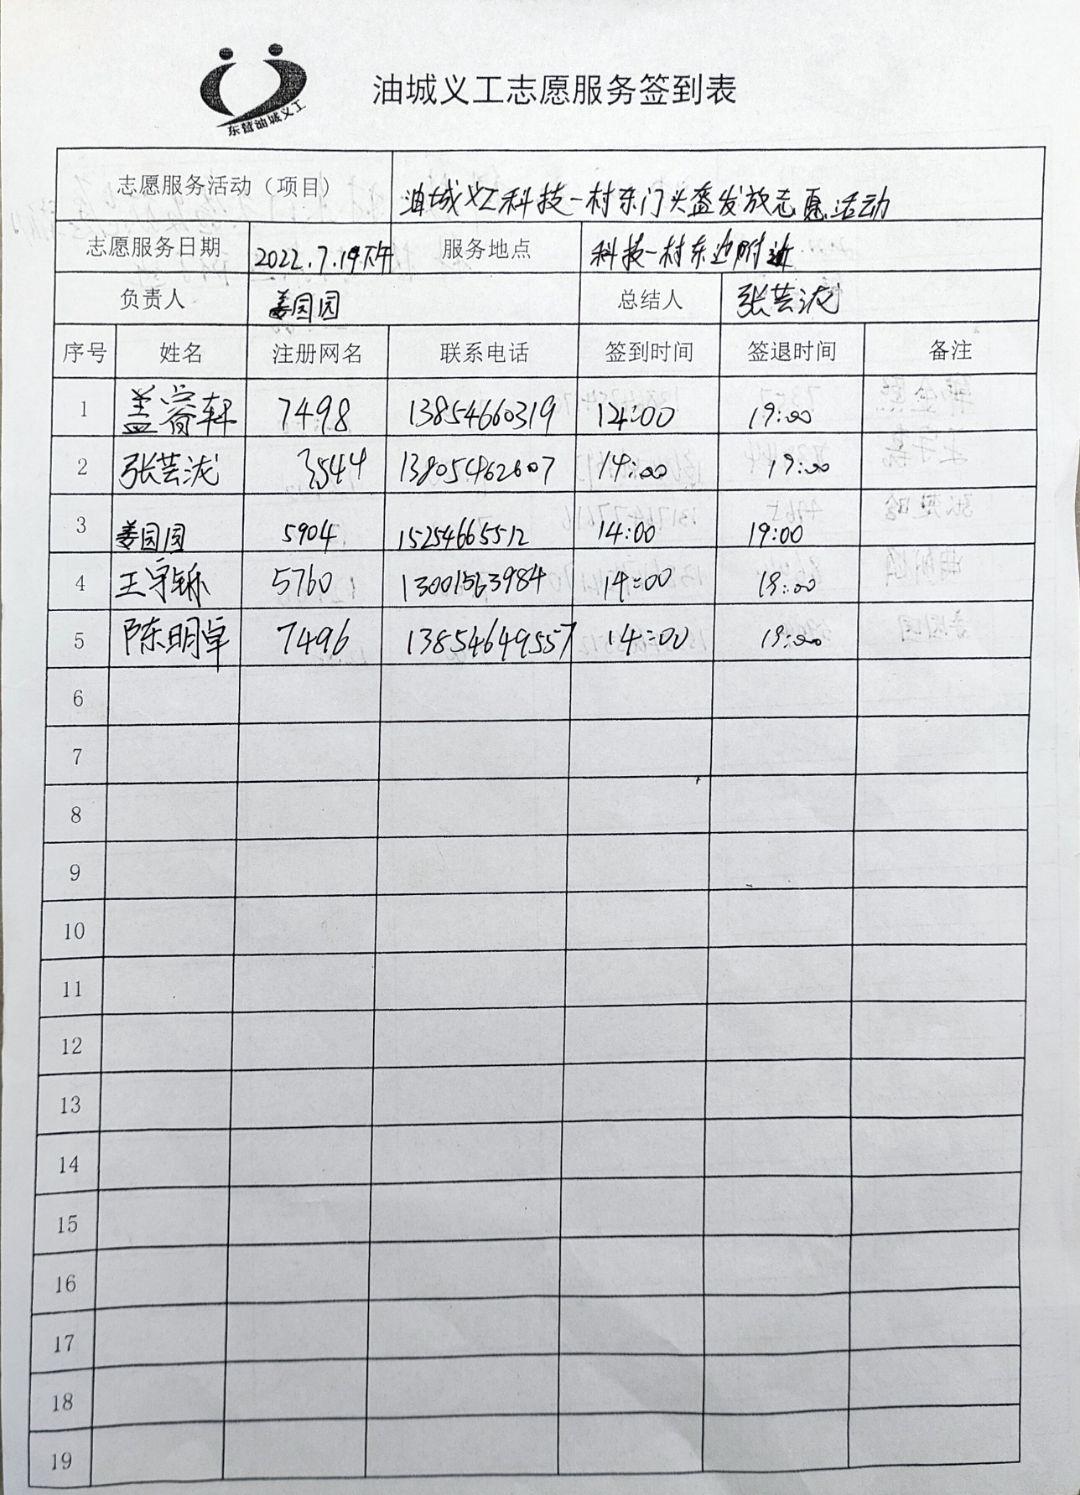 东营油城义工
油城义工志愿服务签到表
志愿服务活动（项目） 油城义工科技一村东门头盔发放志愿活动
志愿服务日期 2022.7.19下午 服务地点 科技一村东边附近
负责人 姜园园 总结人 张芸泷
序号 姓名 注册网名 联系电话 签到时间 签退时间 备注
1 盖睿轩 7498 13854660319 14:00 19:00
2 张芸泷 3544 13805462607 14:00 19:00
3 姜园园 5904 15254665512 14:00 19:00
4 王宇 5760 13001563984 14:00 19:00
5 陈明卓 7496 13854649557 14:00 19:00
6
7
8
9
10
11
12
13
14
15
16
17
18
19